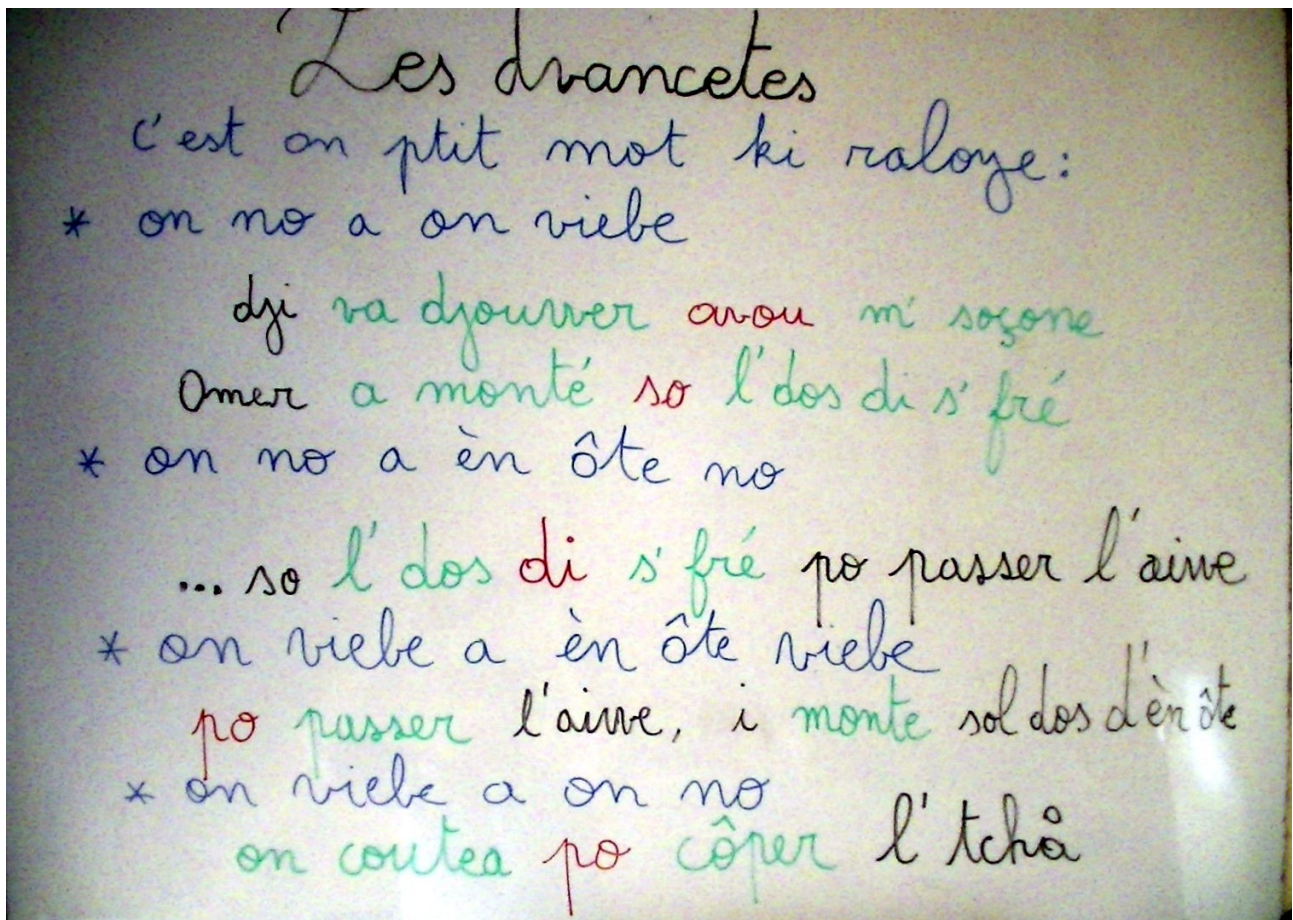 Les dvancetes
c'est on ptit mot ki raloye:
* on no a on viebe
dji va djouwer avou m' soçone
Omer a monté so l' dos di s' fré
* on no a èn ôte no
... so l' dos di s' fré po passer l'aiwe
* on viebe a èn ôte viebe
po passer l'aiwe, i monte sol dos d'èn ôte
* on viebe a on no
on coutea po côper l' tchå